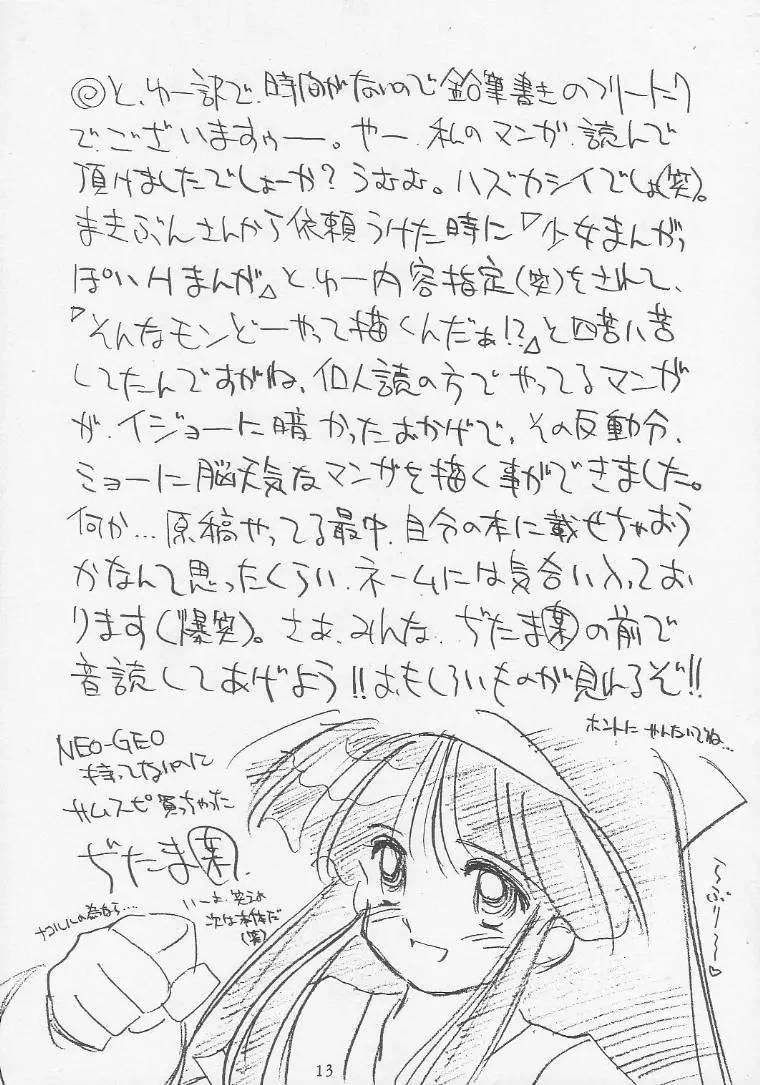 ◎と、ゆー訳で、時間がないので鉛筆書きのフリートーク
でございますぅー。やー、私のマンガ、読んで
頂けましたでしょーか?うむむ。ハズカシイでしょ(笑)。
まきぶんさんから依頼うけた時に『少女まんがっ
ぽいHまんが』と、ゆー内容指定(笑)をされて、
『そんなモンどーやって描くんだぁ!?』と四苦八苦
してたんですがね、個人誌の方でやってるマンガ
が、イジョーに暗かったおかげで、その反動分、
ミョーに脳天気なマンガを描く事ができました。
何か…原稿やってる最中、自分の本に載せちゃおう
かなんて思ったくらい、ネームには気合い入ってお
ります(爆笑)。さあ、みんな、ぢたま㊙の前で
音読してあげよう!!おもしろいものが見れるぞ!!
ホントに やんないでね…
NEO-GEO
持ってないのに
サムスピ買っちゃった
ぢたま
いーもん、笑うな
次は本体だ
(笑)
ナコルルの為なら…
〜ぷり〜〜♡
13